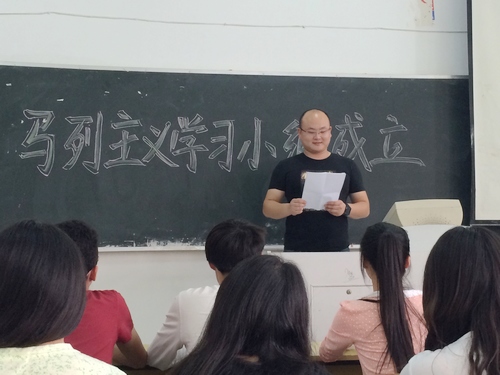 马列主义学习小组成立